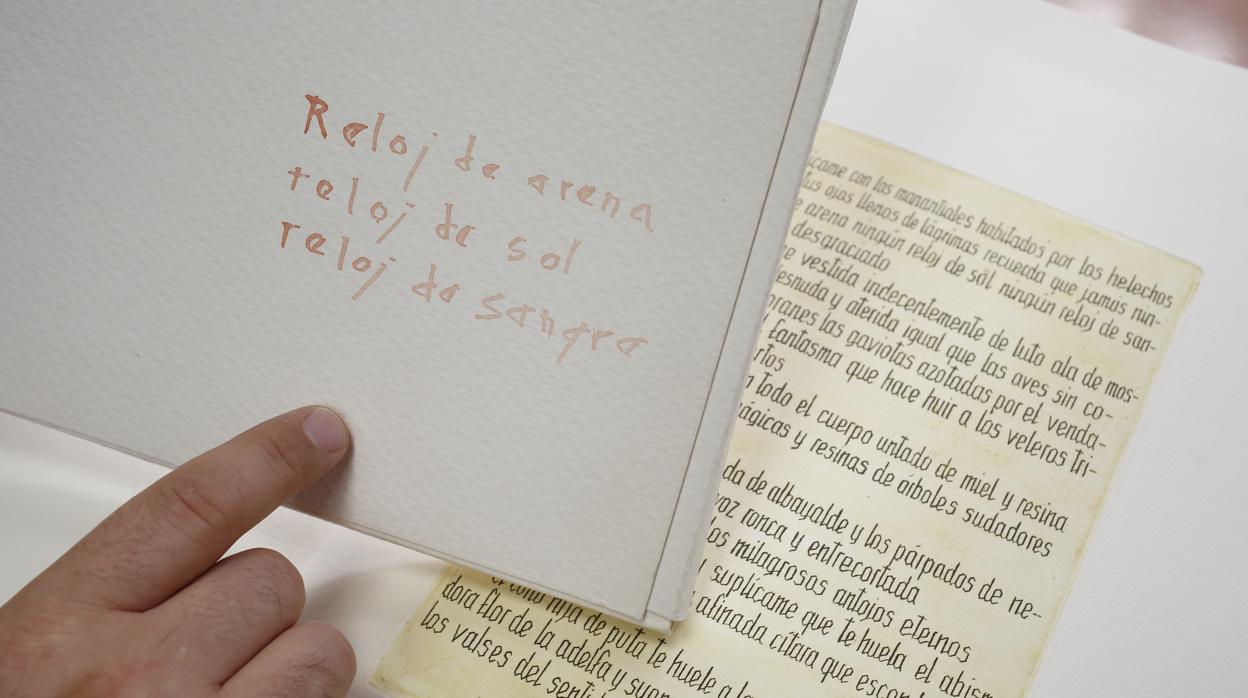 Reloj de arena
reloj de sol
reloj de sangre
con los manantiales habitados por los helechos
tus ojos llenos de lágrimas recuerda que jamás nin-
arena ningún reloj de sol ningún reloj de san-
desgraciado
vestida indecentemente de luto ala de mos-
y aterida igual que las aves sin co-
las gaviotas azotadas por el venda-
fantasma que hace huir a los veleros tri-
todo el cuerpo untado de miel y resina
y resinas de árboles sudadores
de albayalde y los párpados de ne-
voz ronca y entrecortada
los milagrosos antojos eternos
y suplícame que te huela el
afinada cítara que
hija de puta te huele a
flor de la adelfa y
los valses del